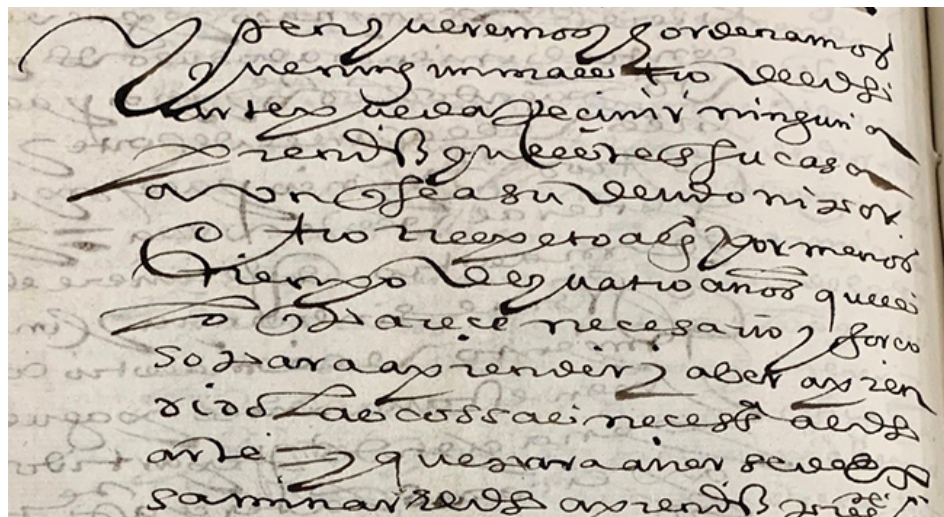 Yten queremos y ordenamos
que ning un maestro del dho
arte pueda Recivir ningun a
prendiz que este en su casa
aun q sea su deudo ni por
otro respeto alg por menos
tiempo de quatro años que el
q parece necesario y forco
so para aprender y aber apren
dido las cossas necess al dho
arte y que para aver se de
saminar el dho aprendiz